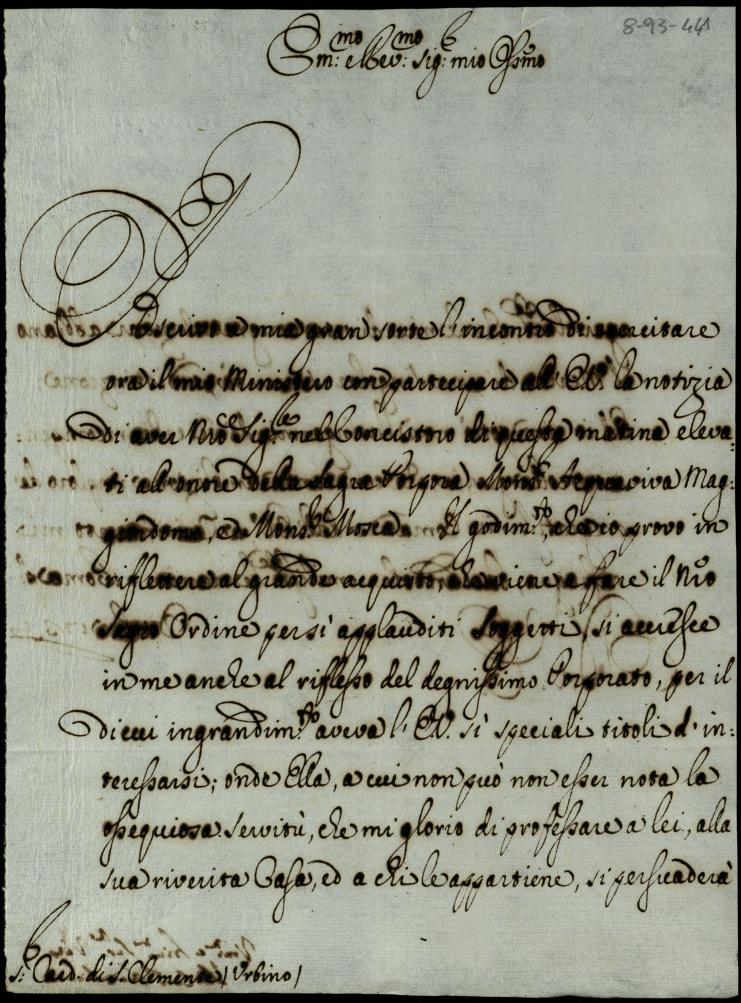 8-93-441
Em.mo e Rev.mo Sig.r mio Oss.mo
Ascrivo a mia gran sorte l'incontro di esercitare
ora il mio Ministero con partecipare all' E.V. la notizia
di aver Nro Sig.re nel Concistoro di questa mattina eleva=
ti all'onore della Sagra Porpora Mons.r Acquaviva Mag=
giordomo, e Mons.r Mosca. Il godim.to, che io provo in
riflettere al grande acquisto, che viene a fare il Nro
Sagro Ordine per sì applauditi Soggetti, si accresce
in me anche al riflesso del degnissimo Porporato, per il
di cui ingrandim.to aveva l' E.V. sì speciali titoli d' in=
teressarsi; onde Ella, a cui non può non esser nota la
ossequiosa servitù, che mi glorio di professare a lei, alla
sua riverita Casa, ed a chi le appartiene, si persuaderà
S.r Card. di S. Clemente (Urbino)